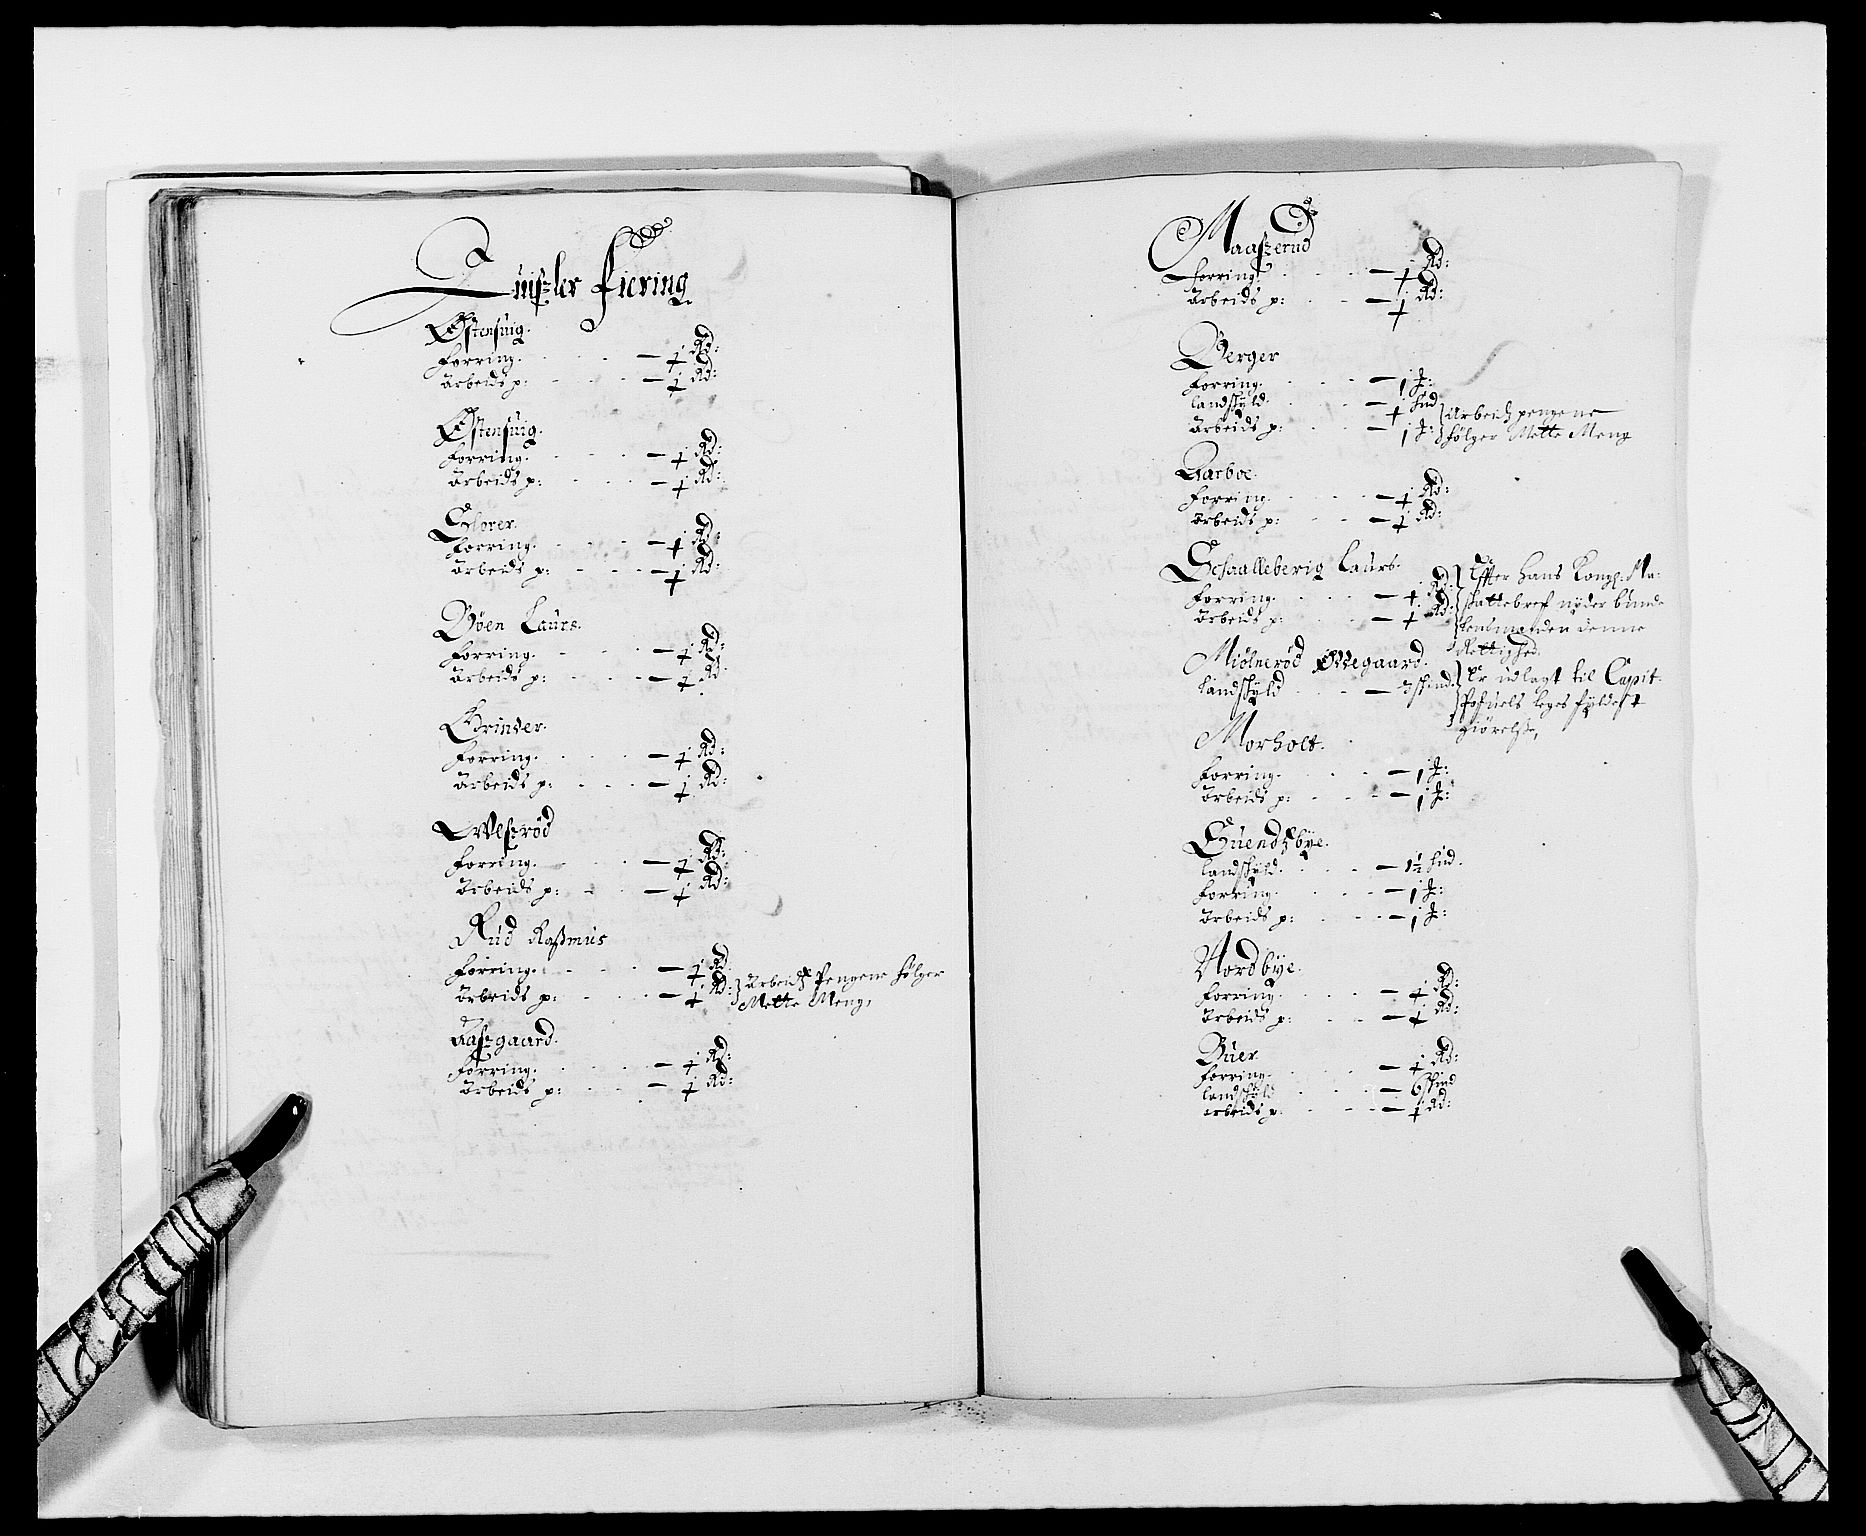 Tuißler Fiering
Østensuig.
Forring. — 1 Rd:
Arbeids p: — 1 Rd:
Østensuig.
Forring. — 1 Rd:
Arbeids p: — 1 Rd:
Glorer.
Forring. — 1 Rd:
Arbeids p: — 1 Rd:
Bøen Laurs.
Forring. — 1 Rd:
Arbeids p: — 1 Rd
Grinder.
Forring. — 1 Rd:
Arbeids p: — 1 Rd:
Forring. — 1 Rd:
Arbeids p: — 1 Rd:
Rud Raßmus
Forring. — 1 Rd.
Arbeids p: — 1 Rd: Arbeids Pengene følger
Mette Meng,
Aaßgaard.
Forring. — 1 Rd:
Arbeids p: — 1 Rd:
Maaßerud
Forring. — 1 Rd:
Arbeids p: — 1 Rd:
Berger
Forring. — 1
Landskyld. — 1 hud
Arbeids p: — 1 Arbeids pengene
følger Mette Meng
Aarboe.
Forring. — 1 Rd:
Arbeids p: — 1 Rd:
Schaalleberig Laurs.
Forring. — 1 Rd:
Arbeids p: — 1 Rd:
Effter Hans Kongl: Ma:
skattebref nyder bunde
lensmanden denne
Rettighed.
Miølnerød Ødegaard.
Landskyld — 3 skind.
Er udlagt til Capit:
giørelße,
Morholt.
Forring. — 1
Arbeids p: — 1
Suendsbye.
Landskyld. — 1½ hud.
Forring. — 1
Arbeids p: — 1
Nordbye.
Forring. — 1 Rd:
Arbeids p: — 1 Rd:
Buer
Forring. — 1 Rd:
Landskyld — 6 skind
arbeids p: — 1 Rd: